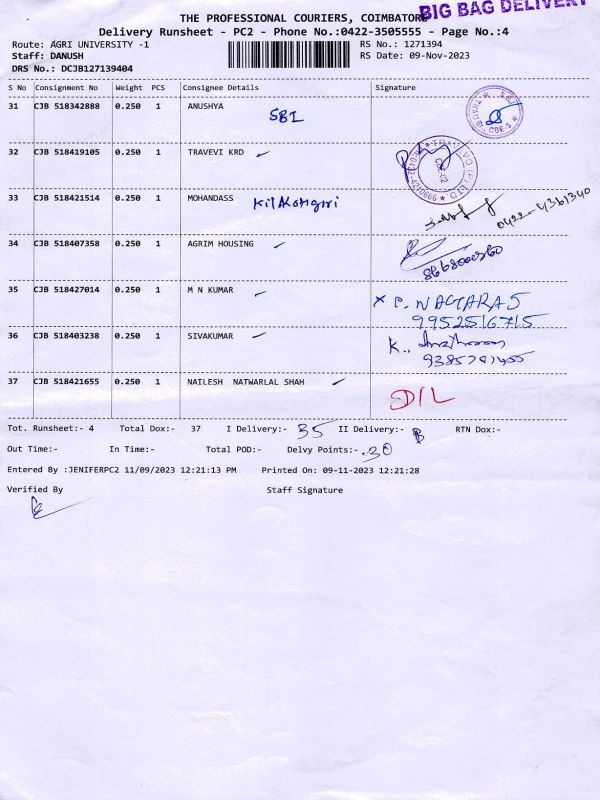 BIG BAG DELIVERY
THE PROFESSIONAL COURIERS, COIMBATORE
Delivery Runsheet - PC2 - Phone No.:0422-3505555 - Page No.:4
Route: AGRI UNIVERSITY -1 RS No.: 1271394
Staff: DANUSH RS Date: 09-Nov-2023
DRS No.: DCJB127139404
S No Consignment No Weight PCS Consignee Details Signature
31 CJB 518342888 0.250 1 ANUSHYA
SBI
32 CJB 518419105 0.250 1 TRAVEVI KRD
33 CJB 518421514 0.250 1 MOHANDASS
0422-4361340
34 CJB 518407358 0.250 1 AGRIM HOUSING
35 CJB 518427014 0.250 1 M N KUMAR
9952516715
36 CJB 518403238 0.250 1 SIVAKUMAR
K..
37 CJB 518421655 0.250 1 NAILESH NATWARLAL SHAH
D/L
Tot. Runsheet:- 4 Total Dox:- 37 I Delivery:- 35 II Delivery:- RTN Dox:-
Out Time:- In Time:- Total POD:- Delvy Points:- .30
Entered By :JENIFERPC2 11/09/2023 12:21:13 PM Printed On: 09-11-2023 12:21:28
Verified By Staff Signature